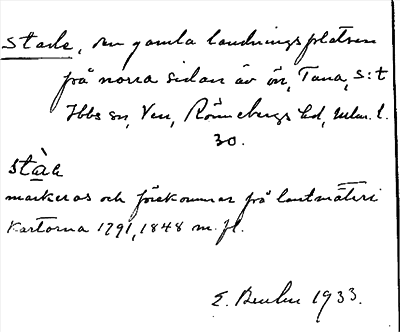 Stade, den gamla landningsplatsen
på norra sidan av ön, Tuna, S:t
Ibbs sn, Ven, Rönnebergs hd, Mlm. l.
30.
stàe
markeras och förekommer på lantmäteri
kartorna 1791, 1848 m. fl.
E. 1933.